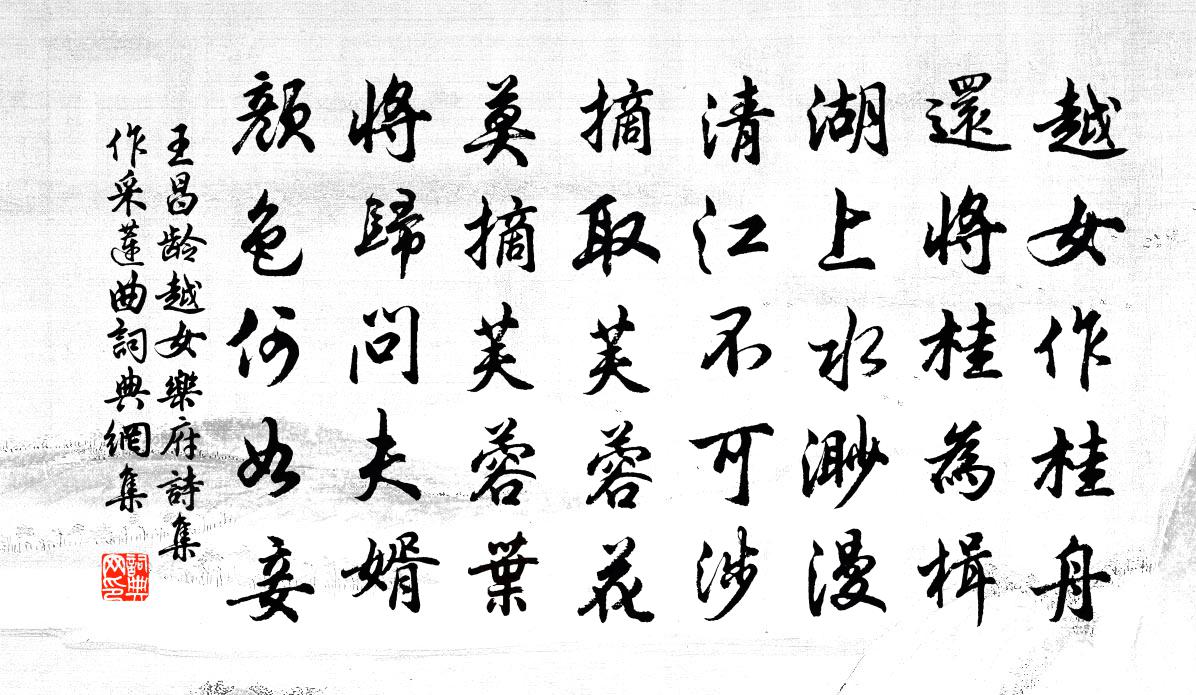 越女作桂舟
還將桂為楫
湖上水渺漫
清江不可涉
摘取芙蓉花
莫摘芙蓉葉
將歸問夫婿
顏色何如妾
王昌龄越女樂府詩集
作采蓮曲詞典網集
詞典
网印